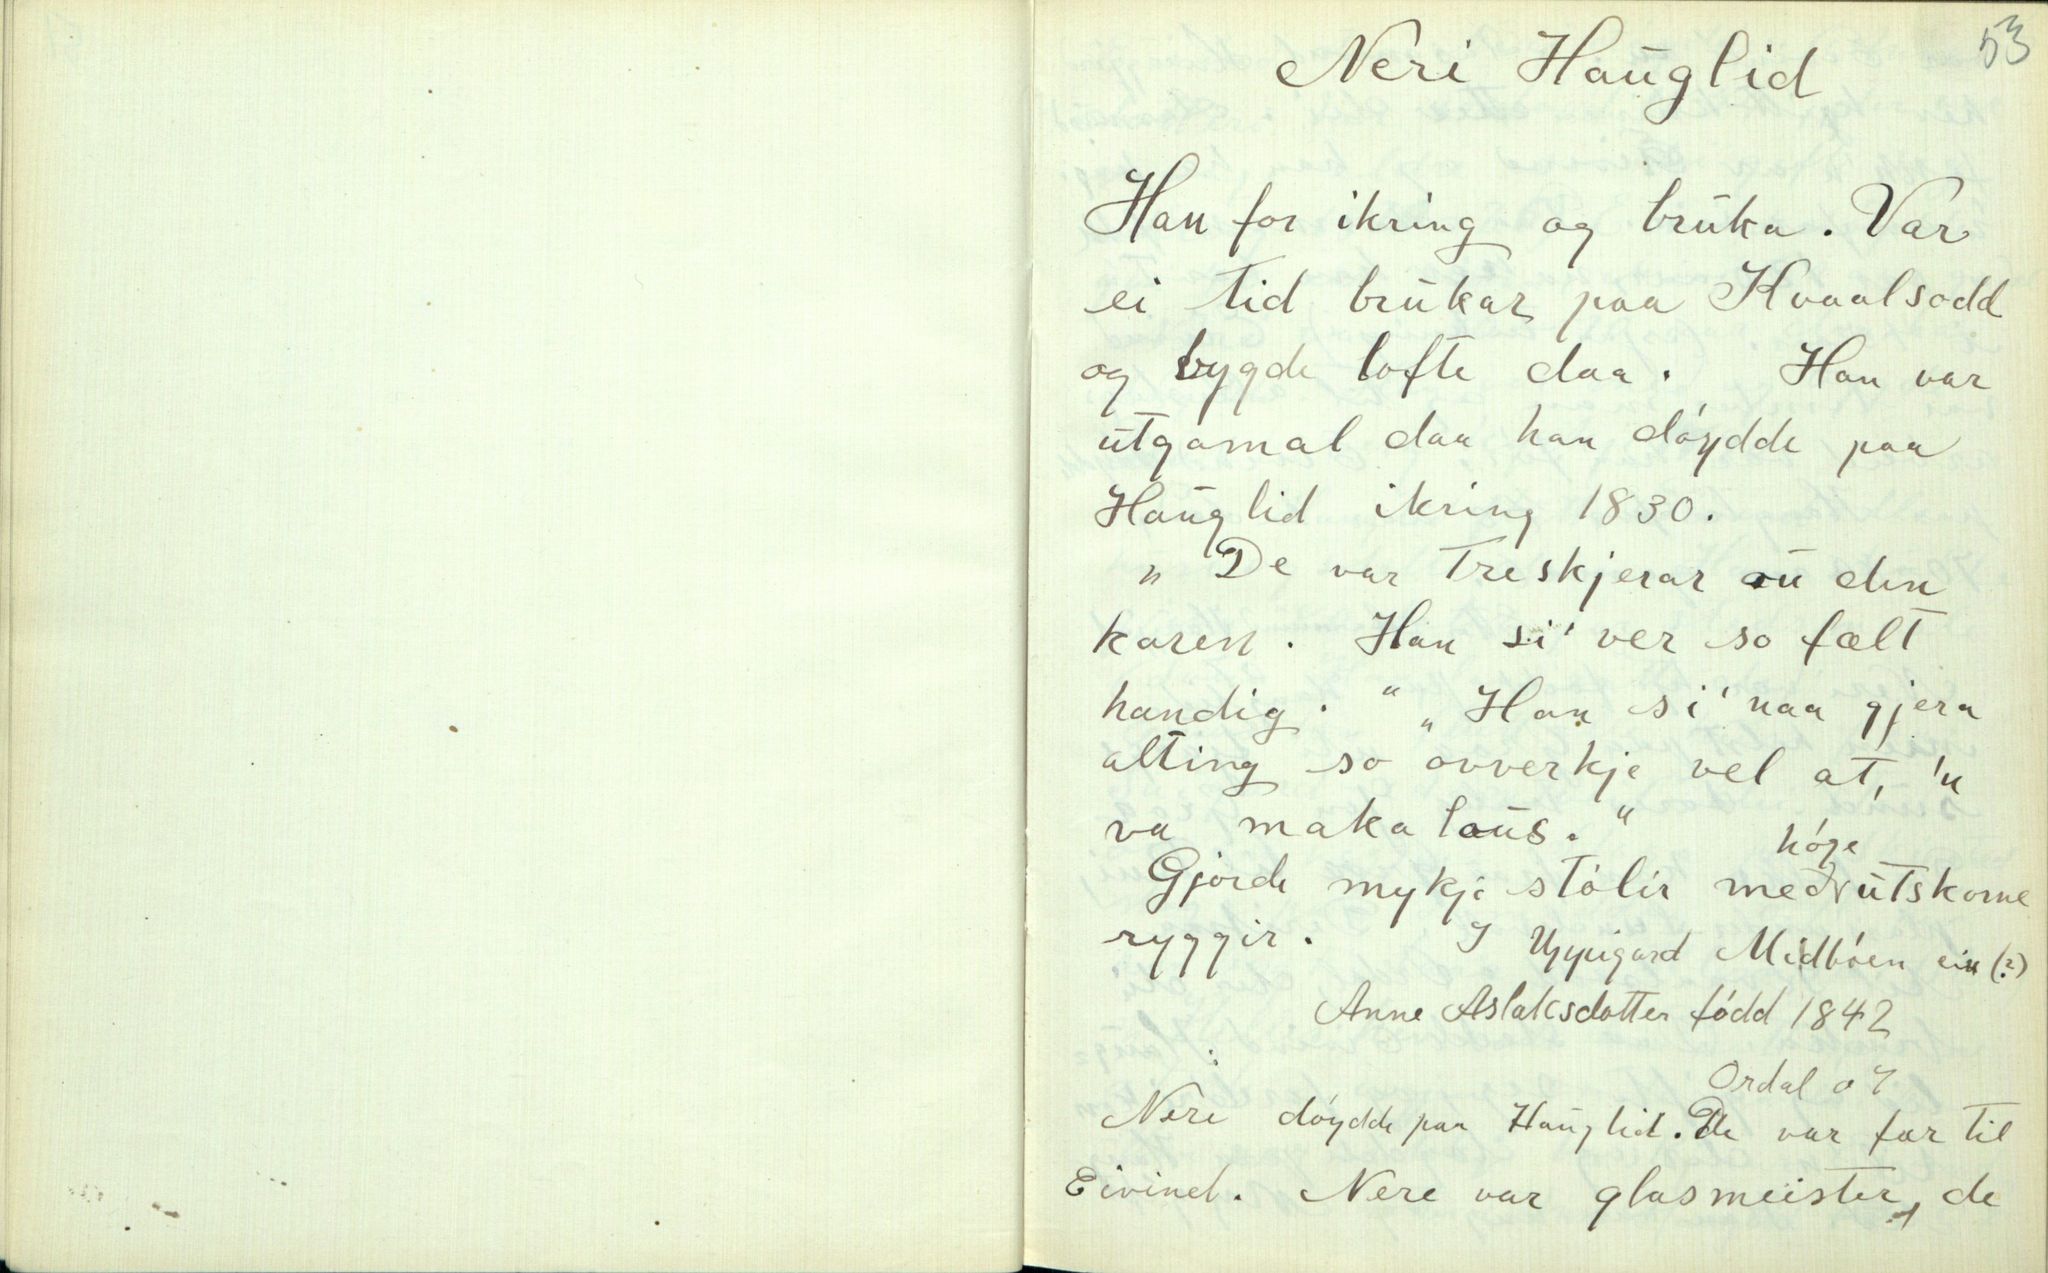 53
Neri Hauglid
Han for ikring og bruka. Var
ei tid brukar paa Kvaalsodd
og bygde lofte daa. Han var
utgamal daa han döydde paa
Hauglid ikring 1830.
„ De var Treskjerar au den
karen. Han si' ver so fælt
handig. " „ Han si' naa gjera
alting so ovverkje vel at, 'n
va makalaus. "
höge
Gjorde mykje stólir med utskorne
ryggir. I Uppigard Midböen ein (?)
Anne Aslaksdotter född 1842
Ordal 07
Nere döydde paa Hauglid. De var far til
Eivind. Nere var glasmeister, de